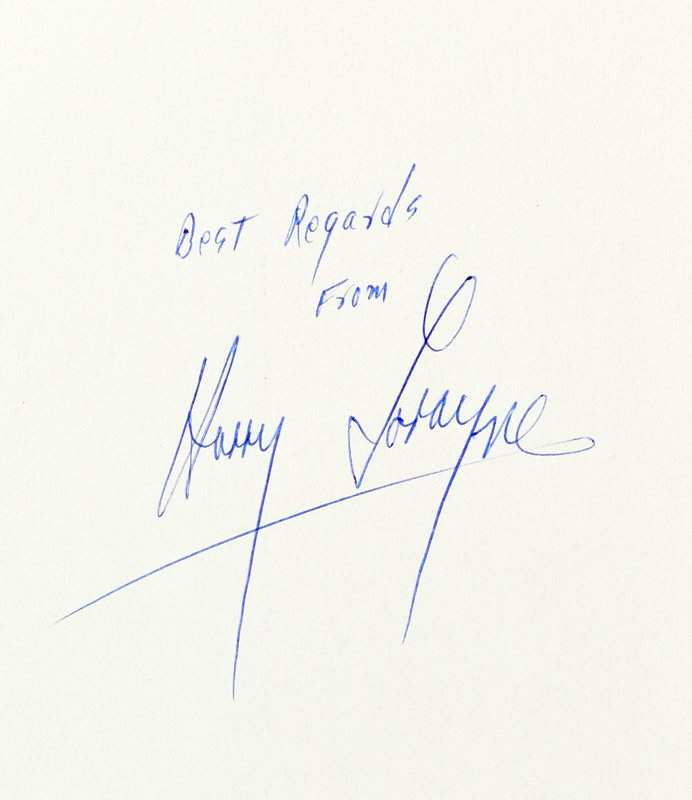 Best Regards
From
Harry Lorayne